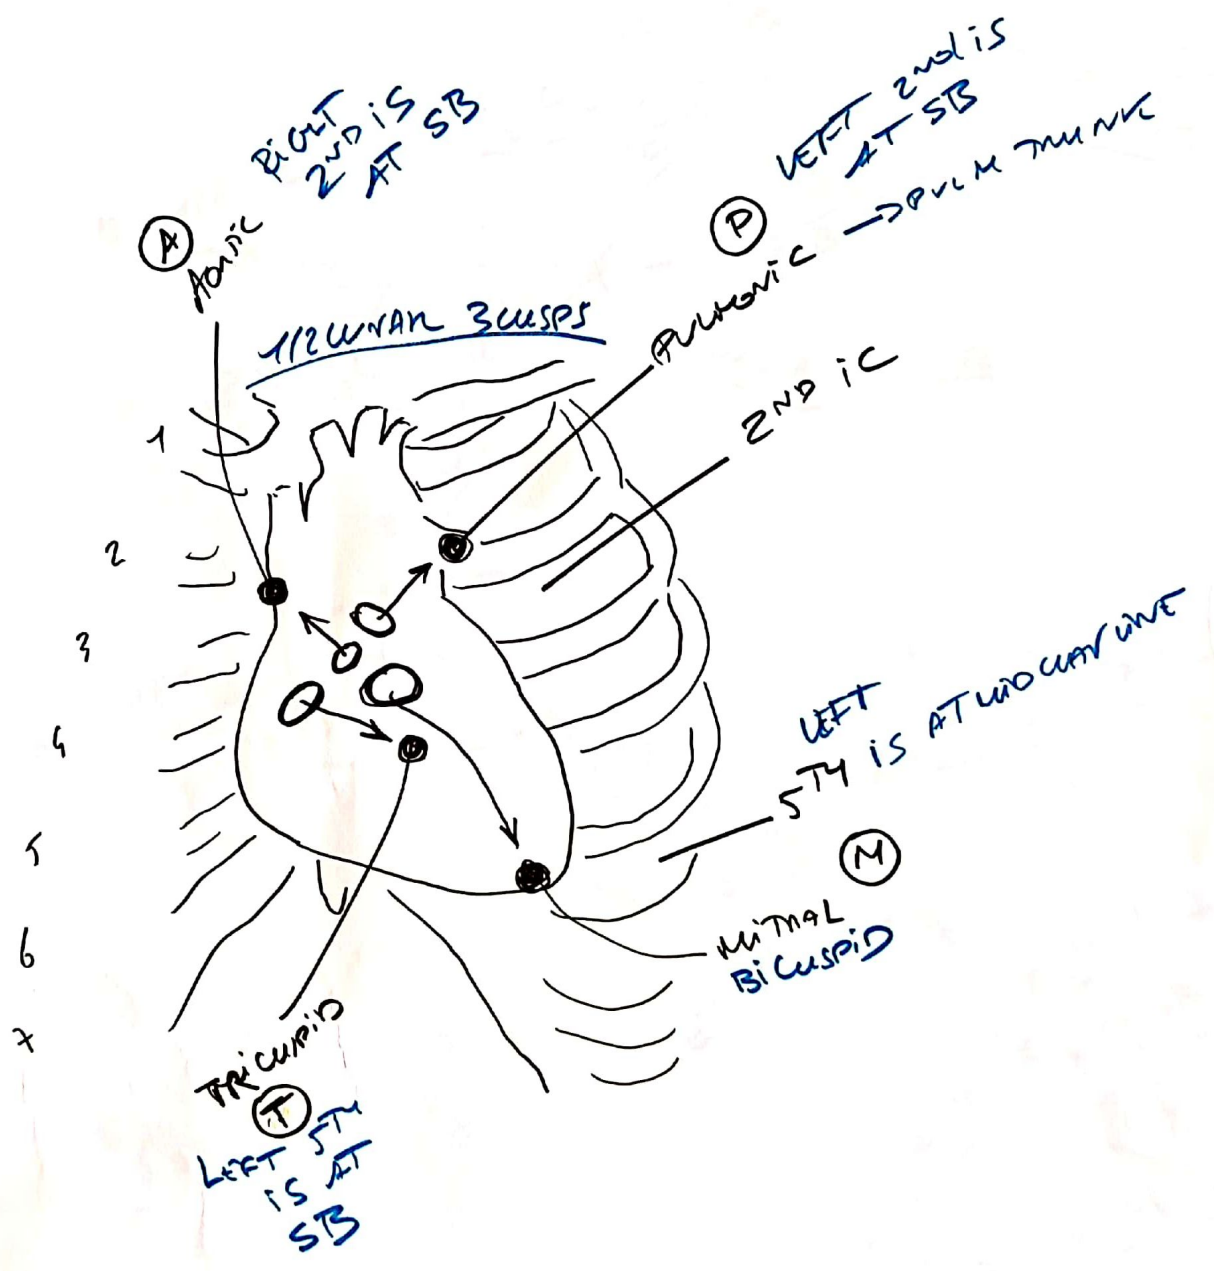 RIGHT
2ND IS
AT SB
LEFT 2nd IS
AT SB
A
AORTIC
P
PULMONIC → PULM TRUNK
1/2 LUNAR 3 CUSPS
2ND IC
1
2
3
4
5
6
7
LEFT
5TH IS AT MIDCLAV LINE
M
MITRAL
BICUSPID
TRICUSPID
T
LEFT 5TH
IS AT
SB